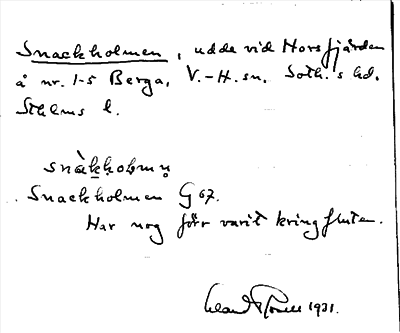 Snackholmen, udde vid Horsfjärden
å nr. 1-5 Berga, V.-H. sn. Soth.s hd.
Sthlms l.
snàkholmn
Snackholmen G 67.
Har nog förr varit kringfluten.
1931.